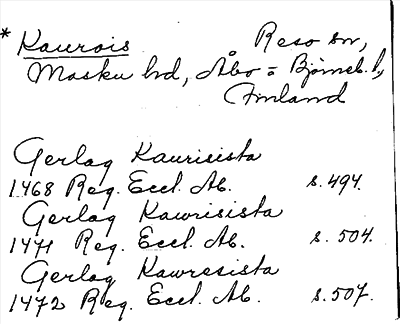 * Kaurois Reso sn,
Masku hd, Åbo = Björneb. l,
Finland
Gerlag Kaurisista
1468 Reg. Eccl. Ab. s. 494.
Gerlag Kawrisista
1471 Reg. Eccl. Ab. s. 504.
Gerlag Kawresista
1472 Reg. Eccl. Ab. s. 507.